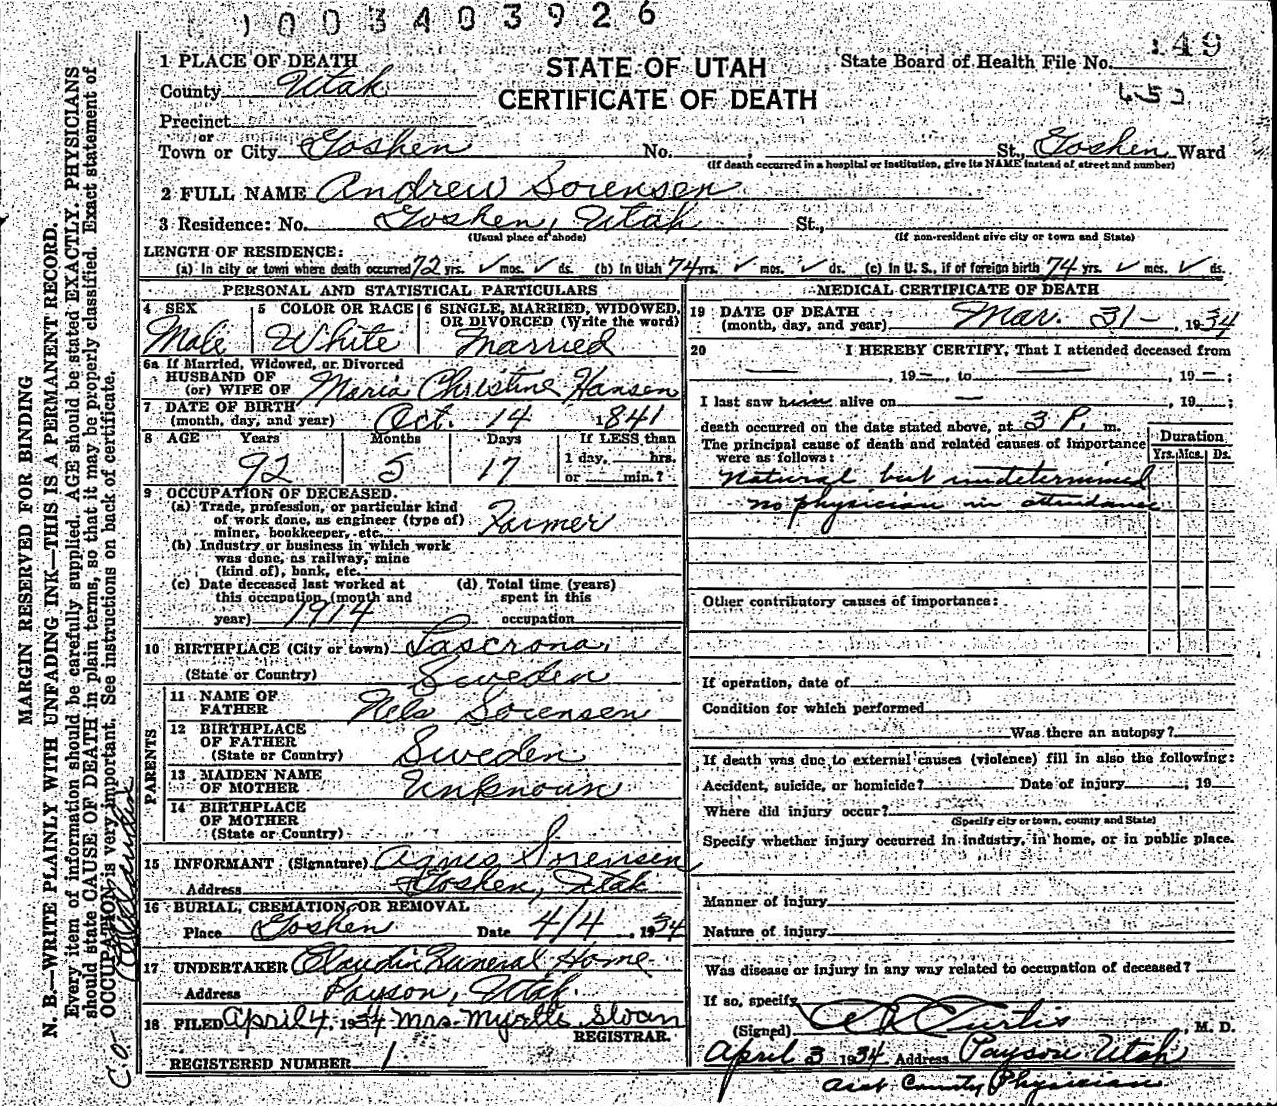 1003403926
149
1 PLACE OF DEATH
STATE OF UTAH
State Board of Health File No.
County Utah
CERTIFICATE OF DEATH
Precinct
or
Town or City Goshen No. St., Goshen Ward
(If death occurred in a hospital or institution, give its NAME instead of street and number)
2 FULL NAME Andrew Sorensen
3 Residence: No. Goshen, Utah St.,
(Usual place of abode) (If non-resident give city or town and State)
LENGTH OF RESIDENCE:
(a) In city or town where death occurred 72 yrs. ✓ mos. ✓ ds. (b) In Utah 74 yrs. ✓ mos. ✓ ds. (c) In U. S., if of foreign birth 74 yrs. ✓ mos. ✓ ds.
PERSONAL AND STATISTICAL PARTICULARS
4 SEX 5 COLOR OR RACE 6 SINGLE, MARRIED, WIDOWED,
OR DIVORCED (Write the word)
Male White Married
6a If Married, Widowed, or Divorced
HUSBAND OF
(or) WIFE OF Maria Christine Hansen
7 DATE OF BIRTH
(month, day, and year) Oct. 14 1841
8 AGE Years Months Days If LESS than
1 day, hrs.
92 5 17 or min.?
9 OCCUPATION OF DECEASED.
(a) Trade, profession, or particular kind
of work done, as engineer (type of)
miner, bookkeeper, etc. Farmer
(b) Industry or business in which work
was done, as railway, mine
(kind of), bank, etc.
(c) Date deceased last worked at (d) Total time (years)
this occupation (month and spent in this
year) 1914 occupation
10 BIRTHPLACE (City or town) Lascrona,
(State or Country) Sweden
PARENTS
11 NAME OF
FATHER Nels Sorensen
12 BIRTHPLACE
OF FATHER
(State or Country) Sweden
13 MAIDEN NAME
OF MOTHER Unknown
14 BIRTHPLACE
OF MOTHER
(State or Country)
15 INFORMANT (Signature) Agnes Sorensen
Address Goshen, Utah
16 BURIAL, CREMATION, OR REMOVAL
Place Goshen Date 4/4, 1934
17 UNDERTAKER Claudin Funeral Home
Address Payson, Utah.
18 FILED April 4, 1934 Mrs. Myrtle Sloan
REGISTRAR.
REGISTERED NUMBER 1
MEDICAL CERTIFICATE OF DEATH
19 DATE OF DEATH
(month, day, and year) Mar. 31-, 1934
20 I HEREBY CERTIFY, That I attended deceased from
—, 19—, to —, 19—;
I last saw him alive on —, 19 ;
death occurred on the date stated above, at 3 P. m.
The principal cause of death and related causes of importance
were as follows:
Duration
Yrs. Mos. Ds.
Natural but undetermined
no physician in attendance
Other contributory causes of importance:
If operation, date of
Condition for which performed
Was there an autopsy?
If death was due to external causes (violence) fill in also the following:
Accident, suicide, or homicide? Date of injury , 19
Where did injury occur?
(Specify city or town, county and State)
Specify whether injury occurred in industry, in home, or in public place.
Manner of injury
Nature of injury
Was disease or injury in any way related to occupation of deceased?
If so, specify
(Signed) Curtis, M. D.
April 3 1934 Address Payson Utah
Asst County Physician
MARGIN RESERVED FOR BINDING
N. B.—WRITE PLAINLY WITH UNFADING INK—THIS IS A PERMANENT RECORD.
Every item of information should be carefully supplied. AGE should be stated EXACTLY. PHYSICIANS
should state CAUSE OF DEATH in plain terms, so that it may be properly classified. Exact statement of
OCCUPATION is very important. See instructions on back of certificate.